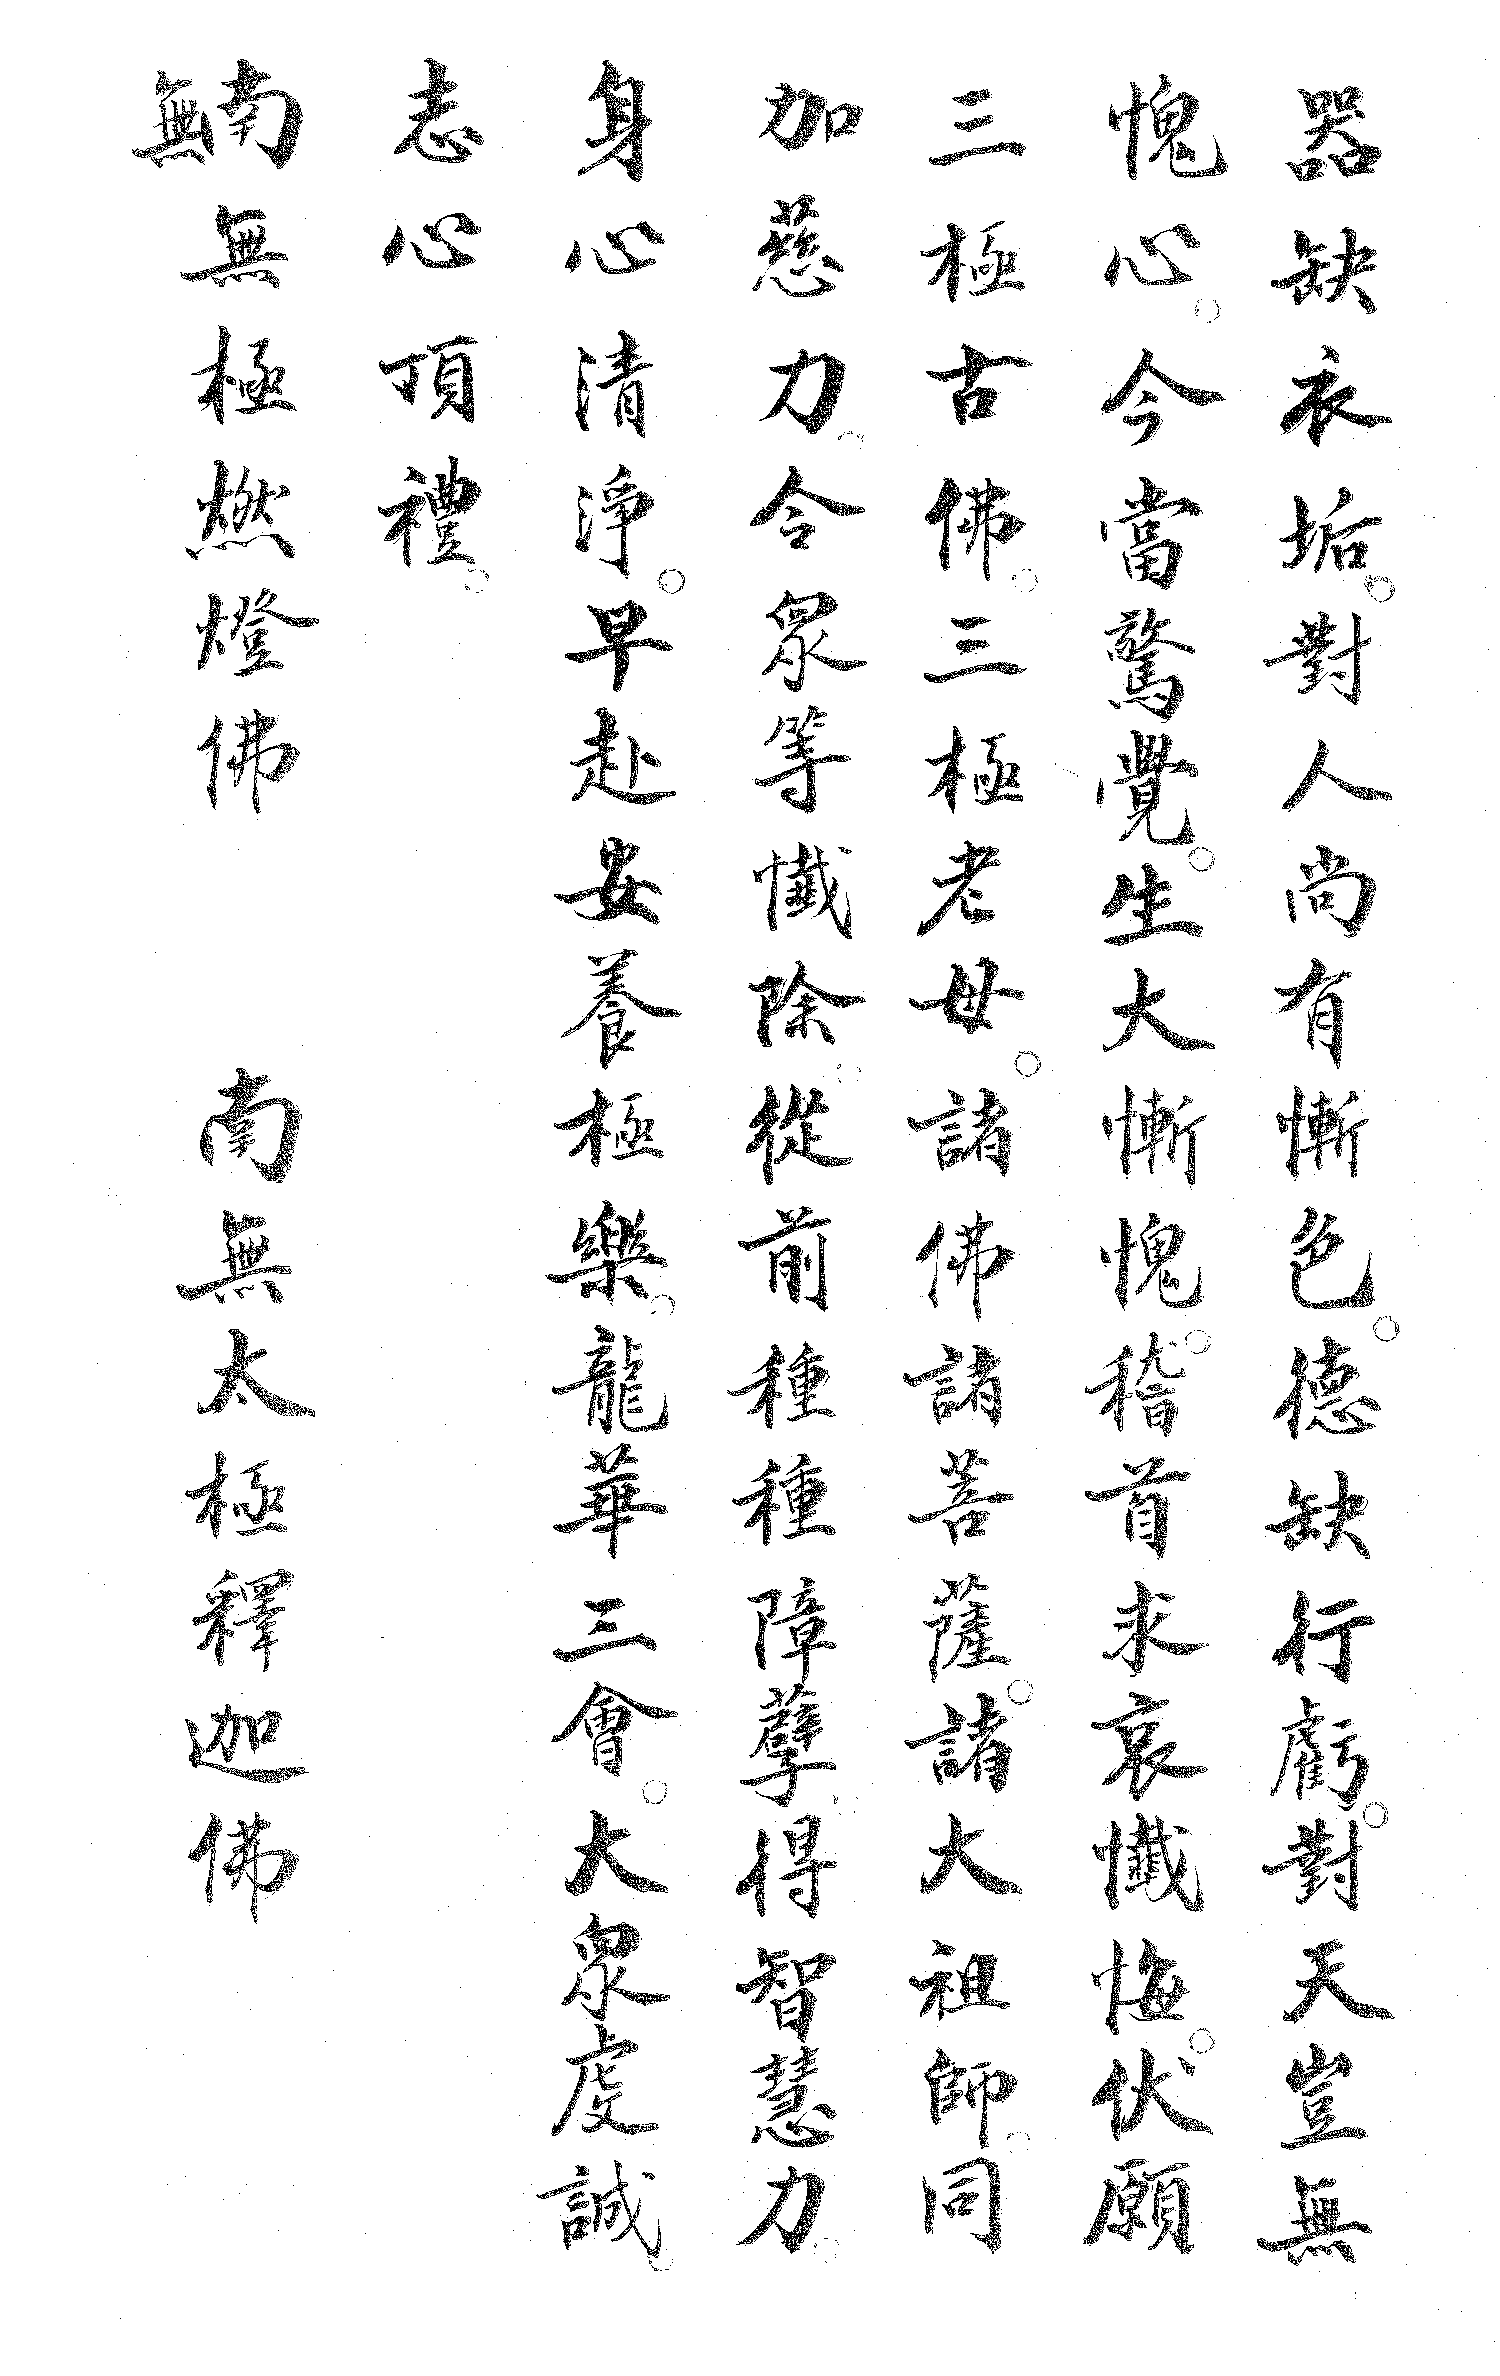 器缺衣垢。對人尚有慚色。德缺行虧。對天豈無
愧心。今當驚覺。生大慚愧。稽首求哀懺悔。伏願
三極古佛。三極老母。諸佛諸菩薩。諸大祖師。同
加慈力。令眾等懺除。從前種種障孽。得智慧力。
身心清淨。早赴安養極樂。龍華三會。大眾虔誠。
志心頂禮。
南無無極燃燈佛　南無太極釋迦佛
無